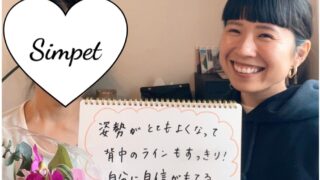 Simpet
姿勢がとてもよくなって
背中のラインもすっきり!
自分に自信がもてる